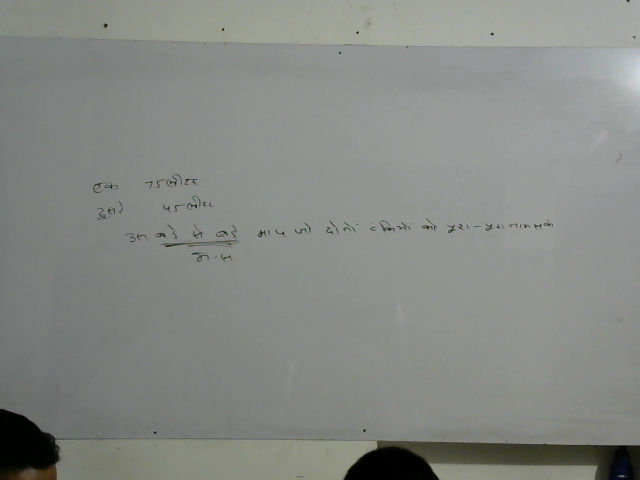 एक 75 लीटर
दुसरे 45 लीटर
उस बड़े से बड़े माप जो दोनो टंकियो को पुरा-पुरा नाप सके
म.स